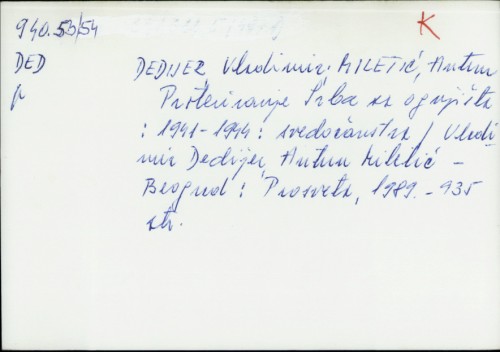 940.53/54
K
DED
DEDIJER, Vladimir. MILETIĆ, Antun
p
Proterivanje Srba sa ognjišta
: 1941-1944 : svedočanstva / Vladi
mir Dedijer, Antun Miletić -
Beograd : Prosveta, 1989. - 935
str.